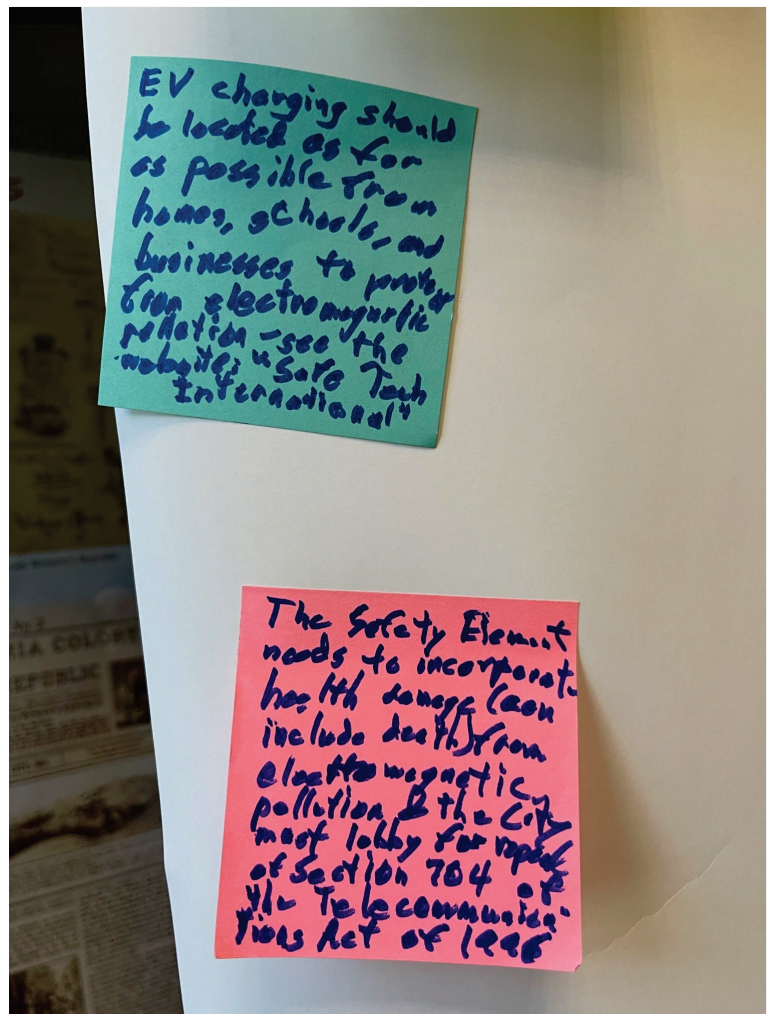 EV charging should
be located as far
as possible from
homes, schools, and
businesses to protect
from electromagnetic
pollution - see the
website: "Safe Tech
International"
The Safety Element
needs to incorporate
health damage (can
include death) from
electromagnetic
pollution & the City
must lobby for repeal
of Section 704 of
the Telecommunica-
tions Act of 1996
IA COLONY
REPUBLIC